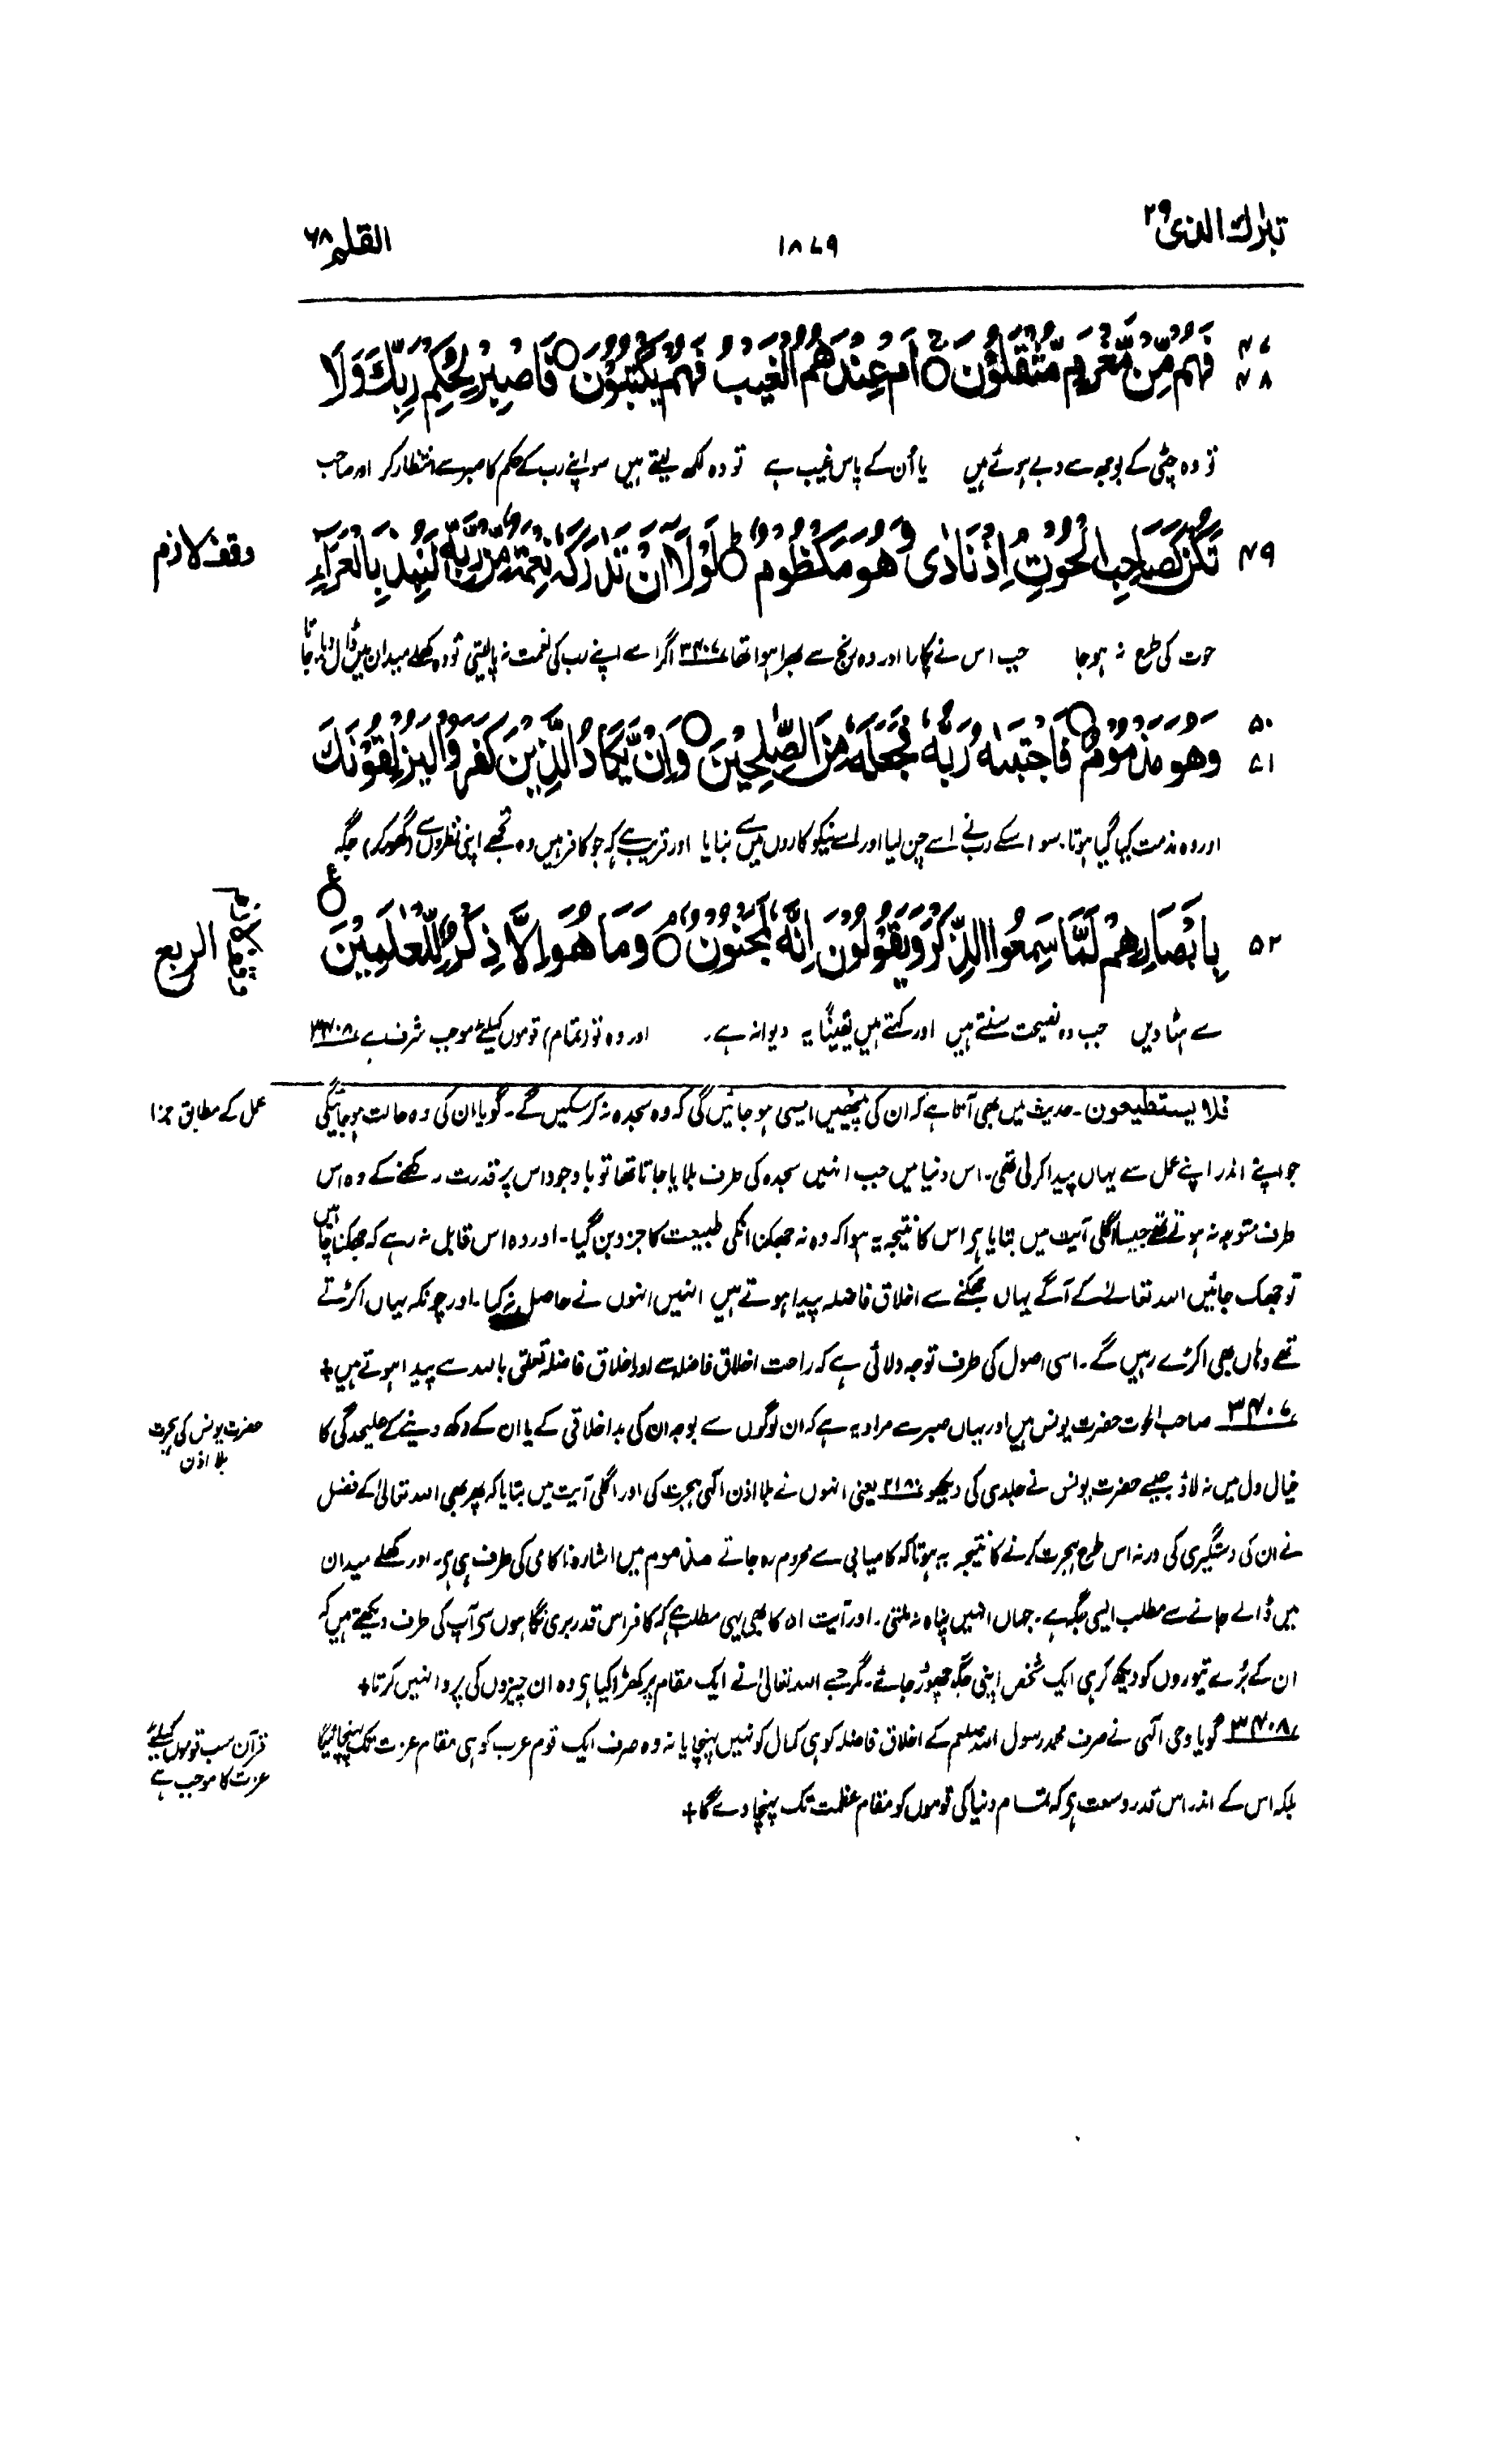 تبٰرك الذی ۲۹
۱۸۷۹
القلم ۶۸
۴۷ فَهُمْ مِّنْ مَّغْرَمٍ مُّثْقَلُوْنَ ○ اَمْ عِنْدَهُمُ الْغَيْبُ فَهُمْ يَكْتُبُوْنَ ○ فَاصْبِرْ لِحُكْمِ رَبِّكَ وَلَا
۴۸
تو وہ چٹی کے بوجھ سے دبے ہوئے ہیں یا اُن کے پاس غیب ہے تو وہ لکھ لیتے ہیں سو اپنے رب کے حکم کا صبر سے انتظار کر اور صاحب
۴۹ تَكُنْ كَصَاحِبِ الْحُوْتِ اِذْ نَادٰى وَهُوَ مَكْظُوْمٌ ○ لَوْلَا اَنْ تَدٰرَكَهٗ نِعْمَةٌ مِّنْ رَّبِّهٖ لَنُبِذَ بِالْعَرَآءِ
وقف لازم
حوت کی طرح نہ ہو جا جب اس نے پکارا اور وہ رنج سے بھرا ہوا تھا ۳۴۰۷ اگر اسے اپنے رب کی نعمت نہ پالیتی تو وہ کھلے میدان میں ڈال دیا جاتا
۵۰ وَهُوَ مَذْمُوْمٌ ○ فَاجْتَبٰىهُ رَبُّهٗ فَجَعَلَهٗ مِنَ الصّٰلِحِيْنَ ○ وَاِنْ يَّكَادُ الَّذِيْنَ كَفَرُوْا لَيُزْلِقُوْنَكَ
۵۱
اور وہ مذمت کیا گیا ہوتا۔ سو اسکے رب نے اسے چن لیا اور اسے نیکو کاروں میں سے بنایا اور قریب ہے کہ جو کافر ہیں وہ تجھے اپنی نظروں سے (گھور کر) جگہ
۵۲ بِاَبْصَارِهِمْ لَمَّا سَمِعُوا الذِّكْرَ وَيَقُوْلُوْنَ اِنَّهٗ لَمَجْنُوْنٌ ○ وَمَا هُوَ اِلَّا ذِكْرٌ لِّلْعٰلَمِيْنَ ○ ع
الربع
سے ہٹا دیں جب وہ نصیحت سنتے ہیں اور کہتے ہیں یقینًا یہ دیوانہ ہے۔ اور وہ تو (تمام) قوموں کیلئے موجب شرف ہے ۳۴۰۸
فلا یستطیعون۔ حدیث میں بھی آتا ہے کہ ان کی پیٹھیں ایسی ہو جائیں گی کہ وہ سجدہ نہ کر سکیں گے۔ گویا ان کی وہ حالت ہو جائیگی
عمل کے مطابق جزا
جو اپنے اندر اپنے عمل سے یہاں پیدا کر لی تھی۔ اس دنیا میں جب انہیں سجدہ کی طرف بلایا جاتا تھا تو باوجود اس پر قدرت رکھنے کے وہ اس
طرف متوجہ نہ ہوتے تھے جیسا اگلی آیت میں بتایا ہے اس کا نتیجہ یہ ہوا کہ وہ نہ جھکنا انکی طبیعت کا جزو بن گیا۔ اور وہ اس قابل نہ رہے کہ جھکنا چاہیں
تو جھک جائیں اللہ تعالیٰ کے آگے یہاں جھکنے سے اخلاق فاضلہ پیدا ہوتے ہیں انہیں انہوں نے حاصل نہ کیا۔ اور چونکہ یہاں اکڑتے
تھے وہاں بھی اکڑے رہیں گے۔ اسی اصول کی طرف توجہ دلائی ہے کہ راحت اخلاق فاضلہ سے اور اخلاق فاضلہ تعلق باللہ سے پیدا ہوتے ہیں+
۳۴۰۷ صاحب الحوت حضرت یونس ہیں اور یہاں صبر سے مراد یہ ہے کہ ان لوگوں سے بوجہ ان کی بد اخلاقی کے یا ان کے دکھ دینے کے علیحدگی کا
حضرت یونس کی ہجرت
بلا اذن
خیال دل میں نہ لاؤ جیسے حضرت یونس نے جلدی کی دیکھو ۲۱۸۰ یعنی انہوں نے بلا اذن الٰہی ہجرت کی اور اگلی آیت میں بتایا کہ پھر بھی اللہ تعالیٰ کے فضل
نے ان کی دستگیری کی ورنہ اس طرح ہجرت کرنے کا نتیجہ یہ ہوتا کہ کامیابی سے محروم رہ جاتے مذموم میں اشارہ ناکامی کی طرف ہی ہے۔ اور کھلے میدان
میں ڈالے جانے سے مطلب ایسی جگہ ہے۔ جہاں انہیں پناہ نہ ملتی۔ اور آیت ۵۱ کا بھی یہی مطلب ہے کہ کافر اس قدر بری نگاہوں سے آپ کی طرف دیکھتے ہیں کہ
ان کے بُرے تیوروں کو دیکھ کر ہی ایک شخص اپنی جگہ چھوڑ جائے۔ مگر جسے اللہ تعالیٰ نے ایک مقام پر کھڑا کیا ہے وہ ان چیزوں کی پروا نہیں کرتا+
۳۴۰۸ گویا وحی الٰہی نے صرف محمد رسول اللہ صلعم کے اخلاق فاضلہ کو ہی کمال کو نہیں پہنچایا نہ وہ صرف ایک قوم عرب کو ہی مقام عزت تک پہنچائیگا
قرآن سب قوموں کیلئے
عزت کا موجب ہے
بلکہ اس کے اندر اس قدر وسعت ہے کہ تمام دنیا کی قوموں کو مقام عظمت تک پہنچا دے گا+